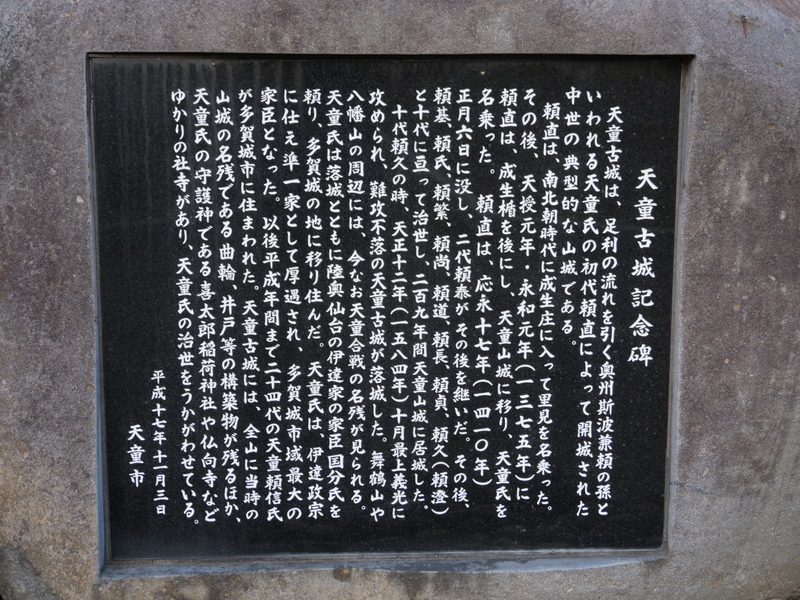 天童古城記念碑
天童古城は、足利の流れを引く奥州斯波兼頼の孫と
いわれる天童氏の初代頼直によって開城された
中世の典型的な山城である。
頼直は、南北朝時代に成生庄に入って里見を名乗った。
その後、天授元年・永和元年(一三七五年)に
頼直は、成生楯を後にし、天童山城に移り、天童氏を
名乗った。頼直は、応永十七年(一四一〇年)
正月六日に没し、二代頼泰がその後を継いだ。その後、
頼基、頼氏、頼繁、頼尚、頼道、頼長、頼貞、頼久(頼澄)
と十代に亘って治世し、二百九年間天童山城に居城した。
十代頼久の時、天正十二年(一五八四年)十月最上義光に
攻められ、難攻不落の天童古城が落城した。舞鶴山や
八幡山の周辺には、今なお天童合戦の名残が見られる。
天童氏は落城とともに陸奥仙台の伊達家の家臣国分氏を
頼り、多賀城の地に移り住んだ。天童氏は、伊達政宗
に仕え準一家として厚遇され、多賀城市域最大の
家臣となった。以後平成年間まで二十四代の天童頼信氏
が多賀城市に住まわれた。天童古城には、全山に当時の
山城の名残である曲輪、井戸等の構築物が残るほか、
天童氏の守護神である喜太郎稲荷神社や仏向寺など
ゆかりの社寺があり、天童氏の治世をうかがわせている。
平成十七年十一月三日
天童市